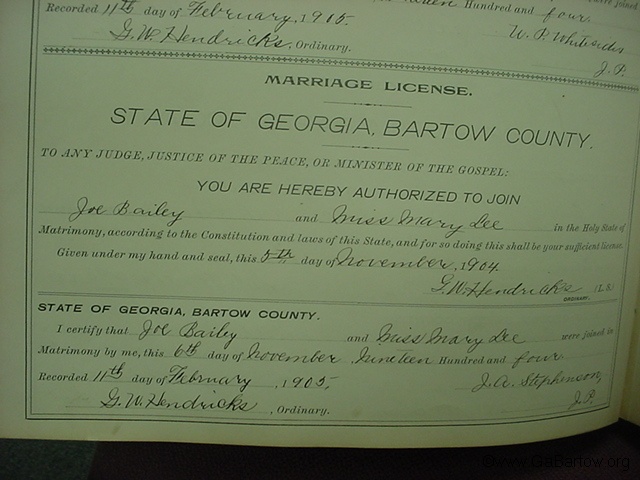 Hundred and four
Recorded 11th day of February, 1905.
W. P. Whitesides
G. W. Hendricks, Ordinary.
J. P.
MARRIAGE LICENSE.
STATE OF GEORGIA, BARTOW COUNTY.
TO ANY JUDGE, JUSTICE OF THE PEACE, OR MINISTER OF THE GOSPEL:
YOU ARE HEREBY AUTHORIZED TO JOIN
Joe Bailey and Miss Mary Lee in the Holy State of
Matrimony, according to the Constitution and laws of this State, and for so doing this shall be your sufficient license.
Given under my hand and seal, this 5th day of November, 1904.
G. W. Hendricks [L.S.]
ORDINARY.
STATE OF GEORGIA, BARTOW COUNTY.
I certify that Joe Bailey and Miss Mary Lee were joined in
Matrimony by me, this 6th day of November Nineteen Hundred and four
Recorded 11th day of February, 1905, J. A. Stephenson,
G. W. Hendricks, Ordinary. J. P.
©www.GaBartow.org